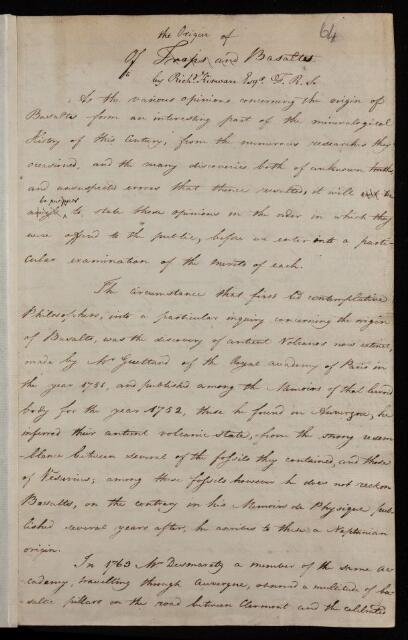 64
the Origin of
Of Traps and Basaltes
by Richd. Kirwan Esqr. F. R. S.
As the various opinions concerning the origin of
Basaltes form an interesting part of the mineralogical
History of this Century, from the numerous researches they
occasioned, and the many discoveries both of unknown truths
and unsuspected errors that thence resulted, it will
be proper
to state those opinions in the order in which they
were offered to the public, before we enter into a parti-
cular examination of the merits of each.
The circumstance that first led contemplative
Philosophers, into a particular inquiry concerning the origin
of Basalts, was the discovery of antient Volcanos now extinct,
made by Mr Guettard of the Royal academy of Paris in
the year 1751, and published among the Memoirs of that learned
body for the year 1752, these he found in Auvergne, he
inferred their antient volcanic state, from the strong resem
blance between several of the fossils they contained, and those
of Vesuvius; among these fossils however he does not reckon
Basalts, on the contrary in his Memoirs de Physique pub-
lished several years after, he ascribes to these a Neptunian
origin.
In 1763 Mr Desmaretz a member of the same ac
cademy, travelling through Auvergne, observed a multitude of ba-
saltic pillars on the road between Clermont and the celebrated